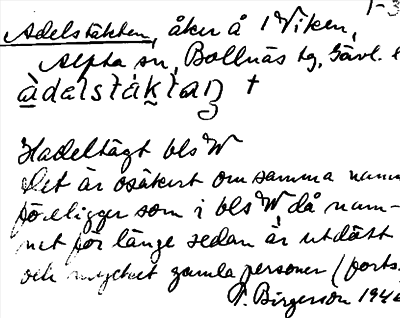 1-3
Adelstäkten, åker å 1 Viken,
Alfta sn, Bollnäs tg, Gävl. l
àdalstáktaɳ †
Hadeltägt bls W
Det är osäkert om samma namn
föreligger som i bls W, då nam-
net för länge sedan är utdött
och mycket gamla personer (forts.
T. Birgerson 194